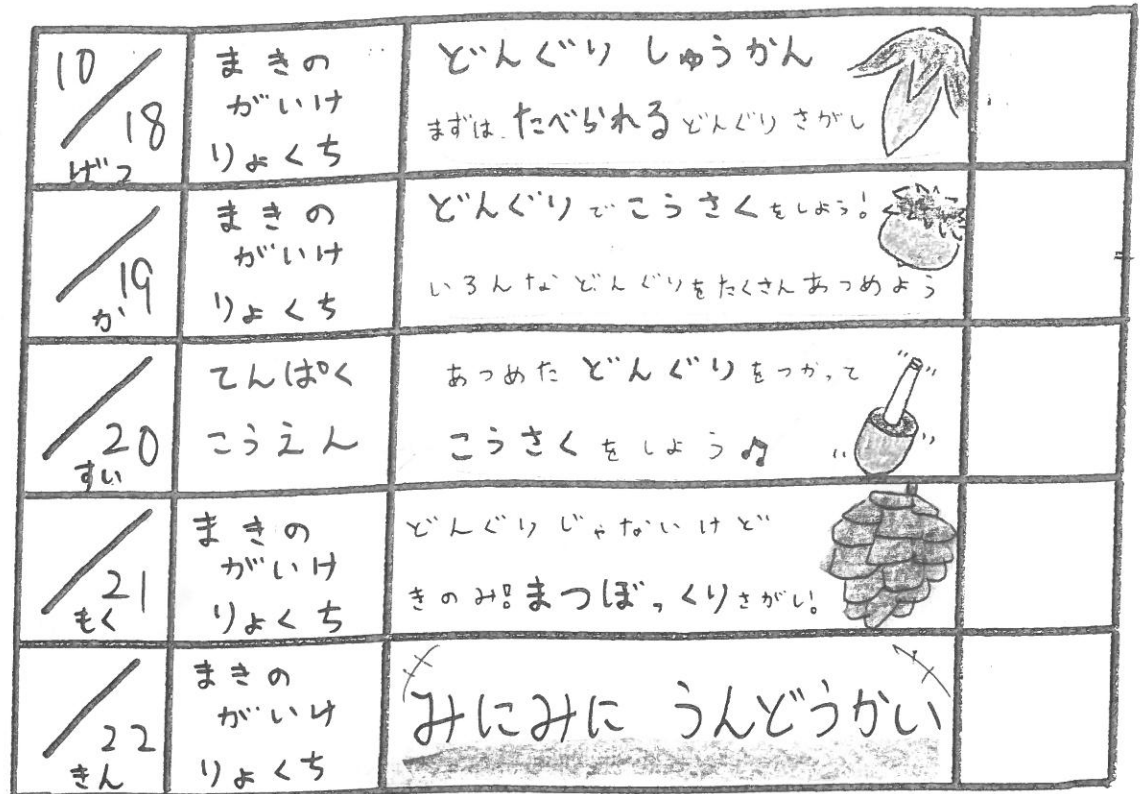 10/18
げつ
まきの
がいけ
りょくち
どんぐり しゅうかん
まずは、たべられるどんぐりさがし
/19
か
まきの
がいけ
りょくち
どんぐりでこうさくをしよう!
いろんなどんぐりをたくさんあつめよう
/20
すい
てんぱく
こうえん
あつめたどんぐりをつかって
こうさくをしよう♫
/21
もく
まきの
がいけ
りょくち
どんぐりじゃないけど
きのみ!!まつぼっくりさがし!
/22
きん
まきの
がいけ
りょくち
みにみに うんどうかい